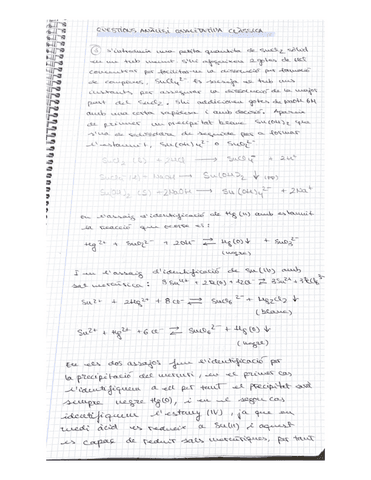 QÜESTIONS ANÀLISI QUALITATIVA CLÀSSICA
① S'introdueix una petita quantitat de SnCl2 sòlid
en un tub . S'hi afegeixen 2 gotes de HCl
concentrat per facilitar-ne la dissolució per formació
de complexos, . Es escalfa el tub uns
instants per assegurar la dissolució de la major
part del SnCl2. S'hi addicionen gotes de NaOH 6M
amb una certa rapidesa i amb . Apareix
de primer un precipitat blanc Sn(OH)2 que
s'ha de redissoldre de seguida per a formar
l'estannit, Sn(OH)4 2- o SnO2 2-
SnCl2 (s) + 2HCl → SnCl4 2- + 2H+
+ NaOH → Sn(OH)2 ↓ (pp)
Sn(OH)2 (s) + 2NaOH → Sn(OH)4 2- + 2Na+
En l'assaig d'identificació de Hg(II) amb estannit
la reacció que ocorre és:
Hg2+ + SnO2 2- + 2OH- ⇌ Hg(0)↓ + SnO3 2-
(negre)
I en l'assaig d'identificació de Sn(IV) amb
sal mercúrica:
Sn2+ + 2Hg2+ + 8Cl- ⇌ SnCl6 2- + Hg2Cl2 ↓
(blanc)
Sn2+ + Hg2+ + 6Cl- ⇌ SnCl6 2- + Hg(0)↓
(negre)
En els dos assajos fem l'identificació per
la precipitació del mercuri, en el primer cas
l'identifiquem a ell per tant el precipitat serà
sempre negre Hg(0), i en el segon cas
identifiquem l'estany (IV), ja que en
medi àcid es redueix a Sn(II) i aquest
és capaç de reduir sals mercúriques, per tant